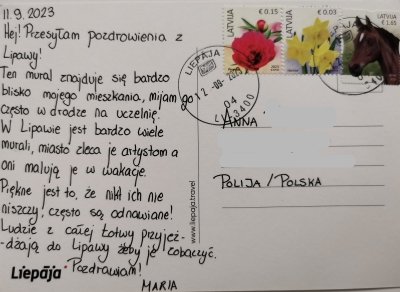 11.9.2023
Hej! Przesyłam pozdrowienia z
Lipawy!
Ten mural znajduje się bardzo
blisko mojego mieszkania, mijam go
często w drodze na uczelnię.
W Lipawie jest bardzo wiele
murali, miasto zleca je artystom a
oni malują je w wakacje.
Piękne jest to, że nikt ich nie
niszczy, często są odnawiane!
Ludzie z całej Łotwy przyjeż-
dżają do Lipawy żeby je zobaczyć.
Pozdrawiam!
MARIA
Liepāja
www.liepaja.travel
LATVIJA €0.15
LATVIJA €0.03
LATVIJA €1.65
LIEPĀJA
12-09-2023
04
LV3400
ANNA
POLIJA/POLSKA